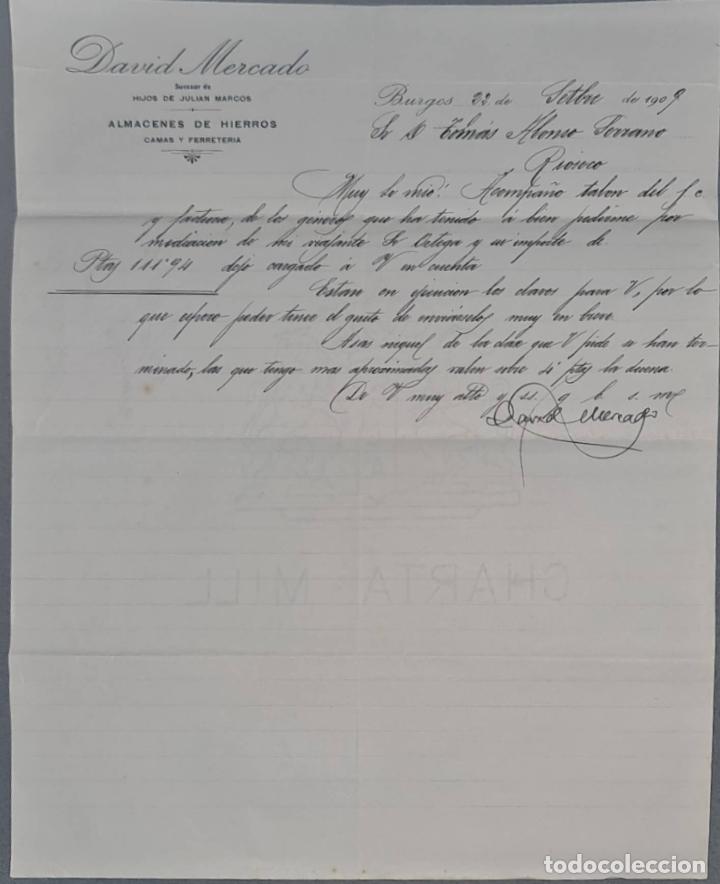 David Mercado
Sucesor de
HIJOS DE JULIAN MARCOS
ALMACENES DE HIERROS
CAMAS Y FERRETERIA
Burgos 22 de Setbre de 1909
Sr D Tomás Alonso Serrano
Rioseco
Muy Sr mio: Acompaño talon del f c
y factura, de los géneros que ha tenido á bien pedirme por
mediacion de mi viajante Sr Ortega y su importe de
Ptas 111'94 dejo cargado á V en cuenta
Estan en ejecucion los claves para V, por lo
que espero poder tener el gusto de enviárselos muy en breve
Asas niquel de la clase que V pide se han ter-
minado, las que tengo mas aproximadas valen sobre 4 ptas la docena
De V muy atto y s. s. q b. s. m
David Mercado
CHARTA MILL
todocoleccion
todocoleccion.net